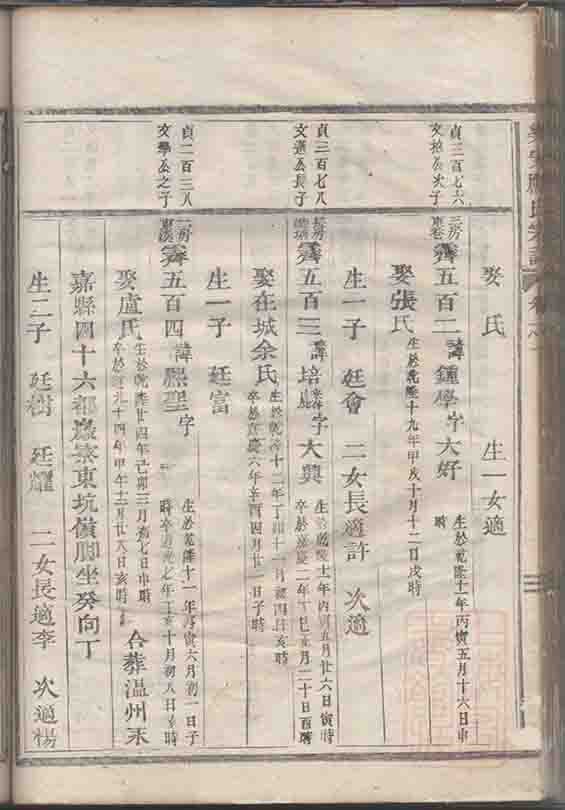 氏宗譜
貞三百七六
文公次子
娶 氏 生一女適
三房
霽五百二 諱鍾學 字大好 生於乾隆十一年丙寅五月十六日申時
娶張氏 生於乾隆十九年甲戌十月十二日戌時
生一子 廷會 二女長適許 次適
貞三百七八
文選公長子
長房
霽五百三 諱培 字大興 生於乾隆十一年丙寅五月廿六日寅時
卒於嘉慶二年丁巳五月二十日酉時
娶在城余氏 生於乾隆十二年丁卯十一月初四日亥時
卒於嘉慶六年辛酉四月廿一日子時
生一子 廷富
貞二百三八
文學公之子
二房
霽五百四 諱熙聖 字 生於乾隆十一年丙寅六月初一日子時
卒於道光七年丁亥十月初八日亥時
娶盧氏 生於乾隆廿四年己卯三月初七日申時
卒於道光十四年甲午十二月廿八日亥時 合葬温州永
嘉縣四十六都寮東坑嶺脚坐癸向丁
生二子 廷樹 廷耀 二女長適李 次適楊